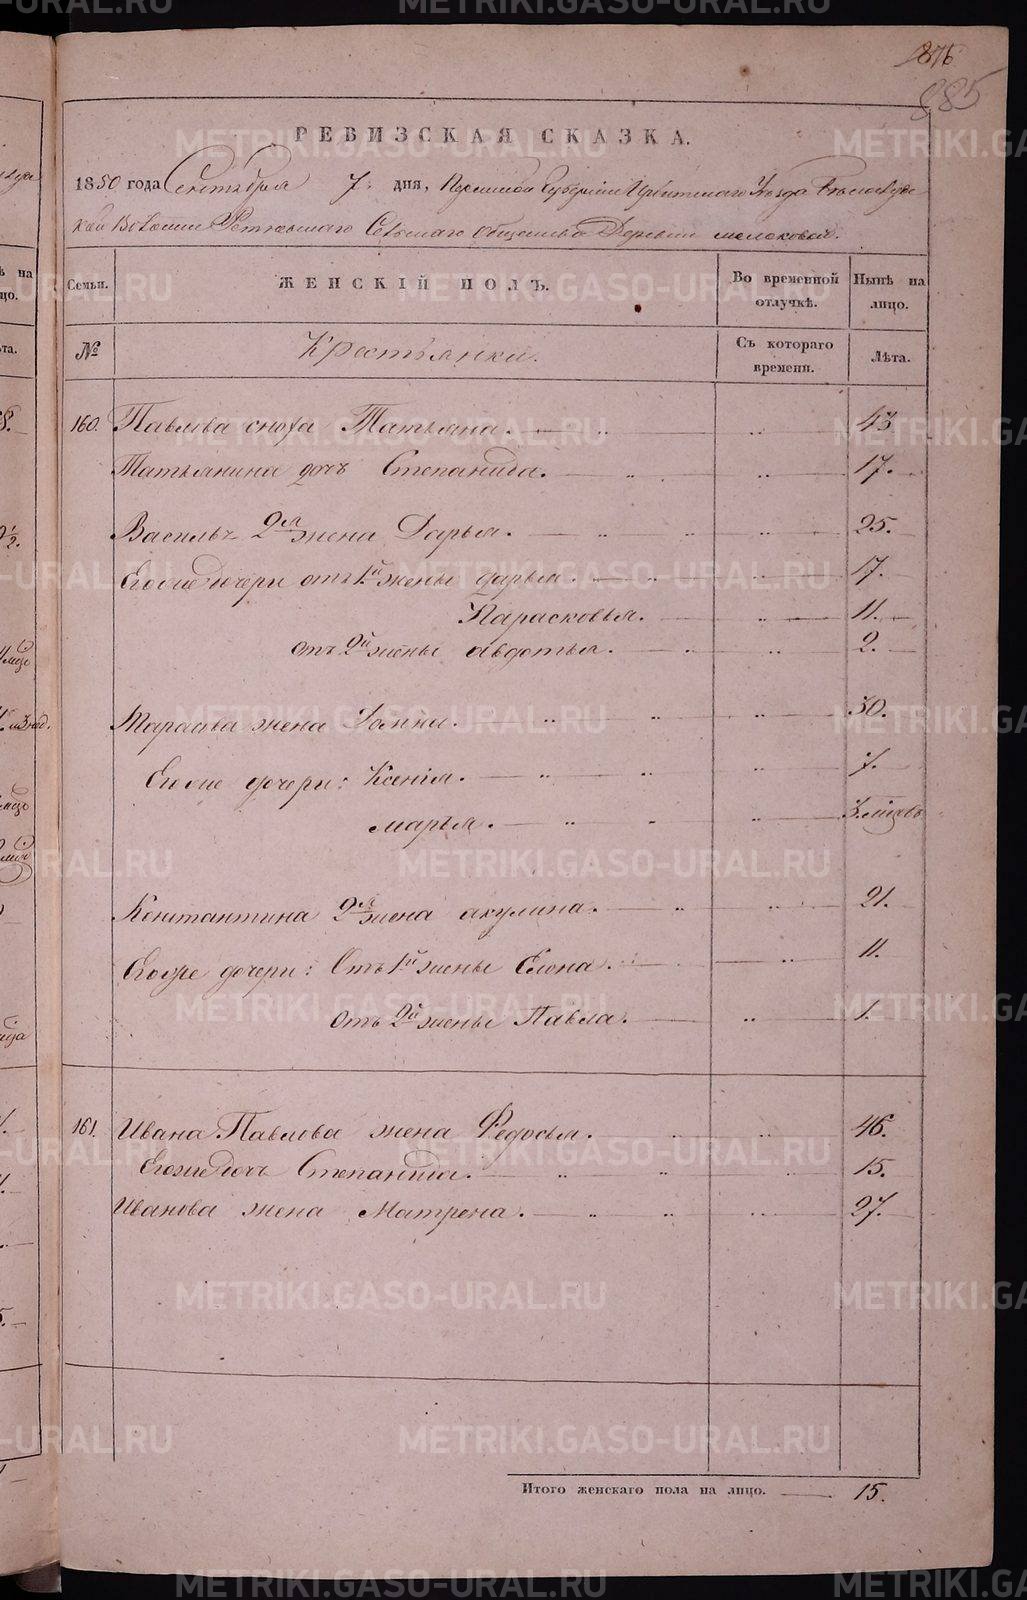 876
885
РЕВИЗСКАЯ СКАЗКА.
1850 года Сентября 7. дня, Пермской Губернiи Ирбитскаго Уѣзда Бѣлослуд
ской Волости Ретневскаго Сельскаго общества Деревни
Семьи. ЖЕНСКІЙ ПОЛЪ. Во временной отлучкѣ. Нынѣ на лицо.
№ Крестьянки. Съ котораго времени. Лѣта.
160. Павлова сноха Татьяна. 43
Татьянина дочь Степанида. 17.
Василья 2я жена Дарья. 25.
Его же дочери отъ 1й жены дарья. 17.
Парасковья. 11.
отъ 2й жены авдотья. 2.
Тараса жена 30.
Его же дочери: Ксенiя. 7.
марья. 3. мѣсяцъ
Константина 2я жена акулина. 21.
Его же дочери: Отъ 1й жены Елена. 11.
отъ 2й жены Павла. 1.
161. Ивана Павлова жена Федосья. 46.
Его же дочь Степанида. 15.
Иванова жена Матрена. 27.
Итого женскаго пола на лицо. 15.
METRIKI.GASO-URAL.RU